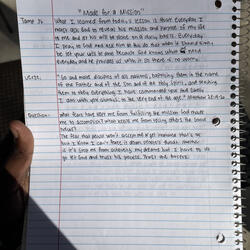 "Made for a Mission"
What I learned from today's lesson is that everyday I
must ask God to reveal his mission and purpose of my life
to me and it his will be done on a daily basis. Everyday
I pray to God and ask him to his do that when it
be let your will be done because God knows what we need
everyday, and he provides us with it so there is no worry.
Verse:
"Go and make disciples of all nations, baptizing them in the name
of the Father and of the Son and of the Holy Spirit, and teaching
them to obey everything I have commanded you. And surely
I am with you always, to the very end of the age." Matthew 28:19-20
Question:
What fears have kept me from fulfilling the mission God made
me to accomplish? What keeps me from telling others the Good
news?
The fear that people won't accept me or get involved that's me
but I know I can't face it when others doubt
is it's stop me from achieving my dreams but I have to let
go let God and trust his process. Trust the process.